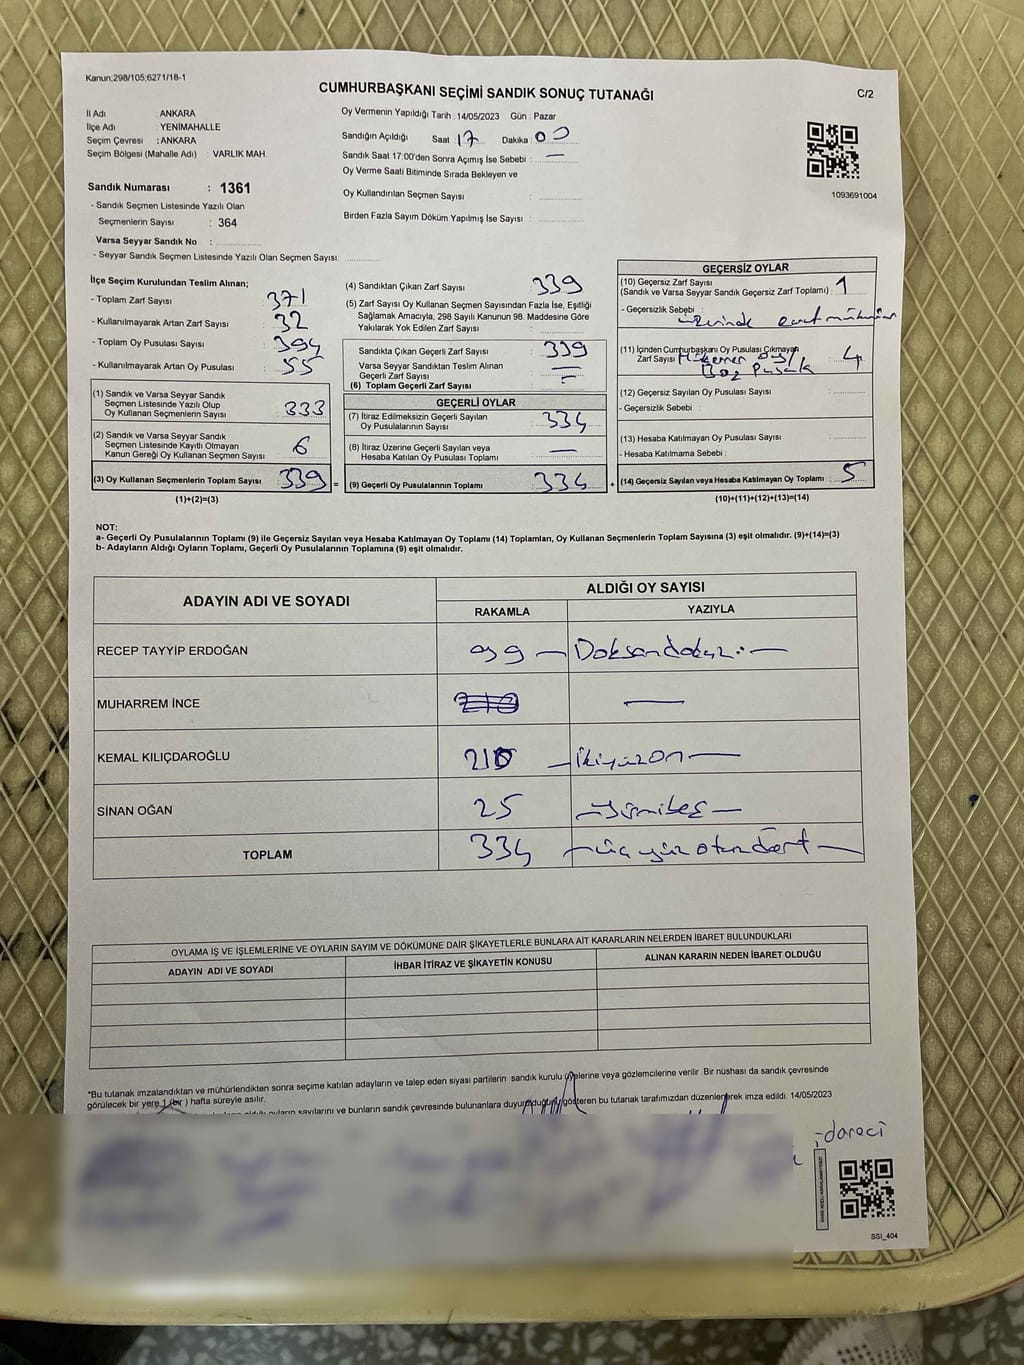 Kanun;298/105;6271/18-1
CUMHURBAŞKANI SEÇİMİ SANDIK SONUÇ TUTANAĞI
C/2
İl Adı : ANKARA
İlçe Adı YENİMAHALLE
Seçim Çevresi : ANKARA
Seçim Bölgesi (Mahalle Adı) : VARLIK MAH
Sandık Numarası : 1361
- Sandık Seçmen Listesinde Yazılı Olan
Seçmenlerin Sayısı : 364
Varsa Seyyar Sandık No :
- Seyyar Sandık Seçmen Listesinde Yazılı Olan Seçmen Sayısı:
Oy Vermenin Yapıldığı Tarih : 14/05/2023 Gün : Pazar
Sandığın Açıldığı Saat : 17 Dakika : 00
Sandık Saat 17:00'den Sonra Açımış İse Sebebi : —
Oy Verme Saati Bitiminde Sırada Bekleyen ve
Oy Kullandırılan Seçmen Sayısı :
Birden Fazla Sayım Döküm Yapılmış İse Sayısı :
1093691004
İlçe Seçim Kurulundan Teslim Alınan;
- Toplam Zarf Sayısı : 371
- Kullanılmayarak Artan Zarf Sayısı : 32
- Toplam Oy Pusulası Sayısı : 394
- Kullanılmayarak Artan Oy Pusulası : 55
(1) Sandık ve Varsa Seyyar Sandık
Seçmen Listesinde Yazılı Olup
Oy Kullanan Seçmenlerin Sayısı : 333
(2) Sandık ve Varsa Seyyar Sandık
Seçmen Listesinde Kayıtlı Olmayan
Kanun Gereği Oy Kullanan Seçmen Sayısı : 6
(3) Oy Kullanan Seçmenlerin Toplam Sayısı : 339
(1)+(2)=(3)
(4) Sandıktan Çıkan Zarf Sayısı : 339
(5) Zarf Sayısı Oy Kullanan Seçmen Sayısından Fazla İse, Eşitliği
Sağlamak Amacıyla, 298 Sayılı Kanunun 98. Maddesine Göre
Yakılarak Yok Edilen Zarf Sayısı :
Sandıkta Çıkan Geçerli Zarf Sayısı : 339
Varsa Seyyar Sandıktan Teslim Alınan
Geçerli Zarf Sayısı : —
(6) Toplam Geçerli Zarf Sayısı : —
GEÇERLİ OYLAR
(7) İtiraz Edilmeksizin Geçerli Sayılan
Oy Pusulalarının Sayısı : 334
(8) İtiraz Üzerine Geçerli Sayılan veya
Hesaba Katılan Oy Pusulası Toplamı : —
= (9) Geçerli Oy Pusulalarının Toplamı : 334 +
GEÇERSİZ OYLAR
(10) Geçersiz Zarf Sayısı
(Sandık ve Varsa Seyyar Sandık Geçersiz Zarf Toplamı) : 1
- Geçersizlik Sebebi :
üzerinde
(11) İçinden Cumhurbaşkanı Oy Pusulası Çıkmayan
Zarf Sayısı : 4
Boş Pusula
(12) Geçersiz Sayılan Oy Pusulası Sayısı :
- Geçersizlik Sebebi :
(13) Hesaba Katılmayan Oy Pusulası Sayısı :
- Hesaba Katılmama Sebebi :
(14) Geçersiz Sayılan veya Hesaba Katılmayan Oy Toplamı : 5
(10)+(11)+(12)+(13)=(14)
NOT:
a- Geçerli Oy Pusulalarının Toplamı (9) ile Geçersiz Sayılan veya Hesaba Katılmayan Oy Toplamı (14) Toplamları, Oy Kullanan Seçmenlerin Toplam Sayısına (3) eşit olmalıdır. (9)+(14)=(3)
b- Adayların Aldığı Oyların Toplamı, Geçerli Oy Pusulalarının Toplamına (9) eşit olmalıdır.
ADAYIN ADI VE SOYADI
ALDIĞI OY SAYISI
RAKAMLA YAZIYLA
RECEP TAYYİP ERDOĞAN 99 — Doksandokuz —
MUHARREM İNCE 210 —
KEMAL KILIÇDAROĞLU 210 — İkiyüzon —
SİNAN OĞAN 25 — Yirmibeş —
TOPLAM 334 — üçyüzotuzdört —
OYLAMA İŞ VE İŞLEMLERİNE VE OYLARIN SAYIM VE DÖKÜMÜNE DAİR ŞİKAYETLERLE BUNLARA AİT KARARLARIN NELERDEN İBARET BULUNDUKLARI
ADAYIN ADI VE SOYADI İHBAR İTİRAZ VE ŞİKAYETİN KONUSU ALINAN KARARIN NEDEN İBARET OLDUĞU
*Bu tutanak imzalandıktan ve mühürlendikten sonra seçime katılan adayların ve talep eden siyasi partilerin sandık kurulu üyelerine veya gözlemcilerine verilir .Bir nüshası da sandık çevresinde
görülecek bir yere 1 (bir ) hafta süreyle asılır.
oyların sayılarını ve bunların sandık çevresinde bulunanlara duyurulduğunu gösteren bu tutanak tarafımızdan düzenlenerek imza edildi. 14/05/2023
SSI_404